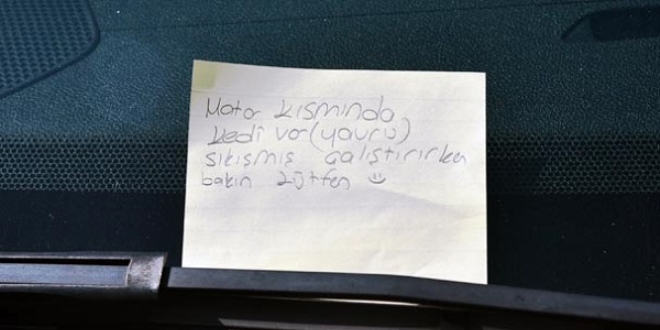 Motor kısmında
kedi var (yavru)
sıkışmış çalıştırırken
bakın lütfen :)